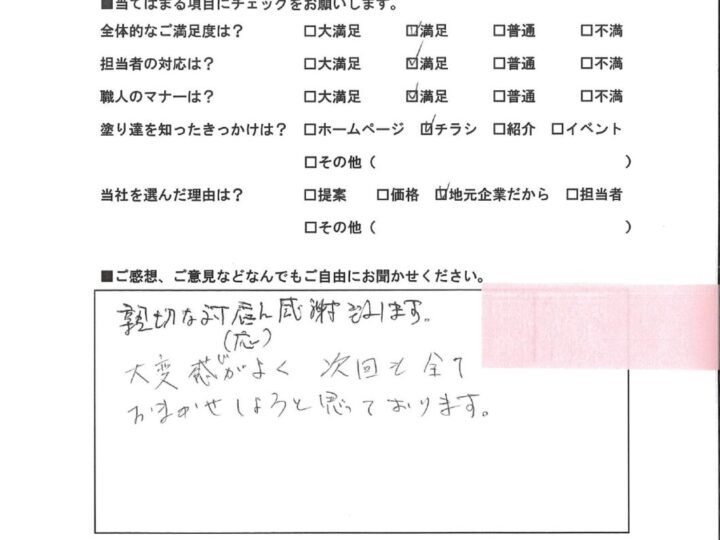 ■当てはまる項目にチェックをお願いします。
全体的なご満足度は？ □大満足 ☑満足 □普通 □不満
担当者の対応は？ □大満足 ☑満足 □普通 □不満
職人のマナーは？ □大満足 ☑満足 □普通 □不満
塗り達を知ったきっかけは？ □ホームページ ☑チラシ □紹介 □イベント
□その他（ ）
当社を選んだ理由は？ □提案 □価格 ☑地元企業だから □担当者
□その他（ ）
■ご感想、ご意見などなんでもご自由にお聞かせください。
親切な対応ん感謝ております。
（応）
大変感じがよく 次回も全て
おまかせしようと思っております。